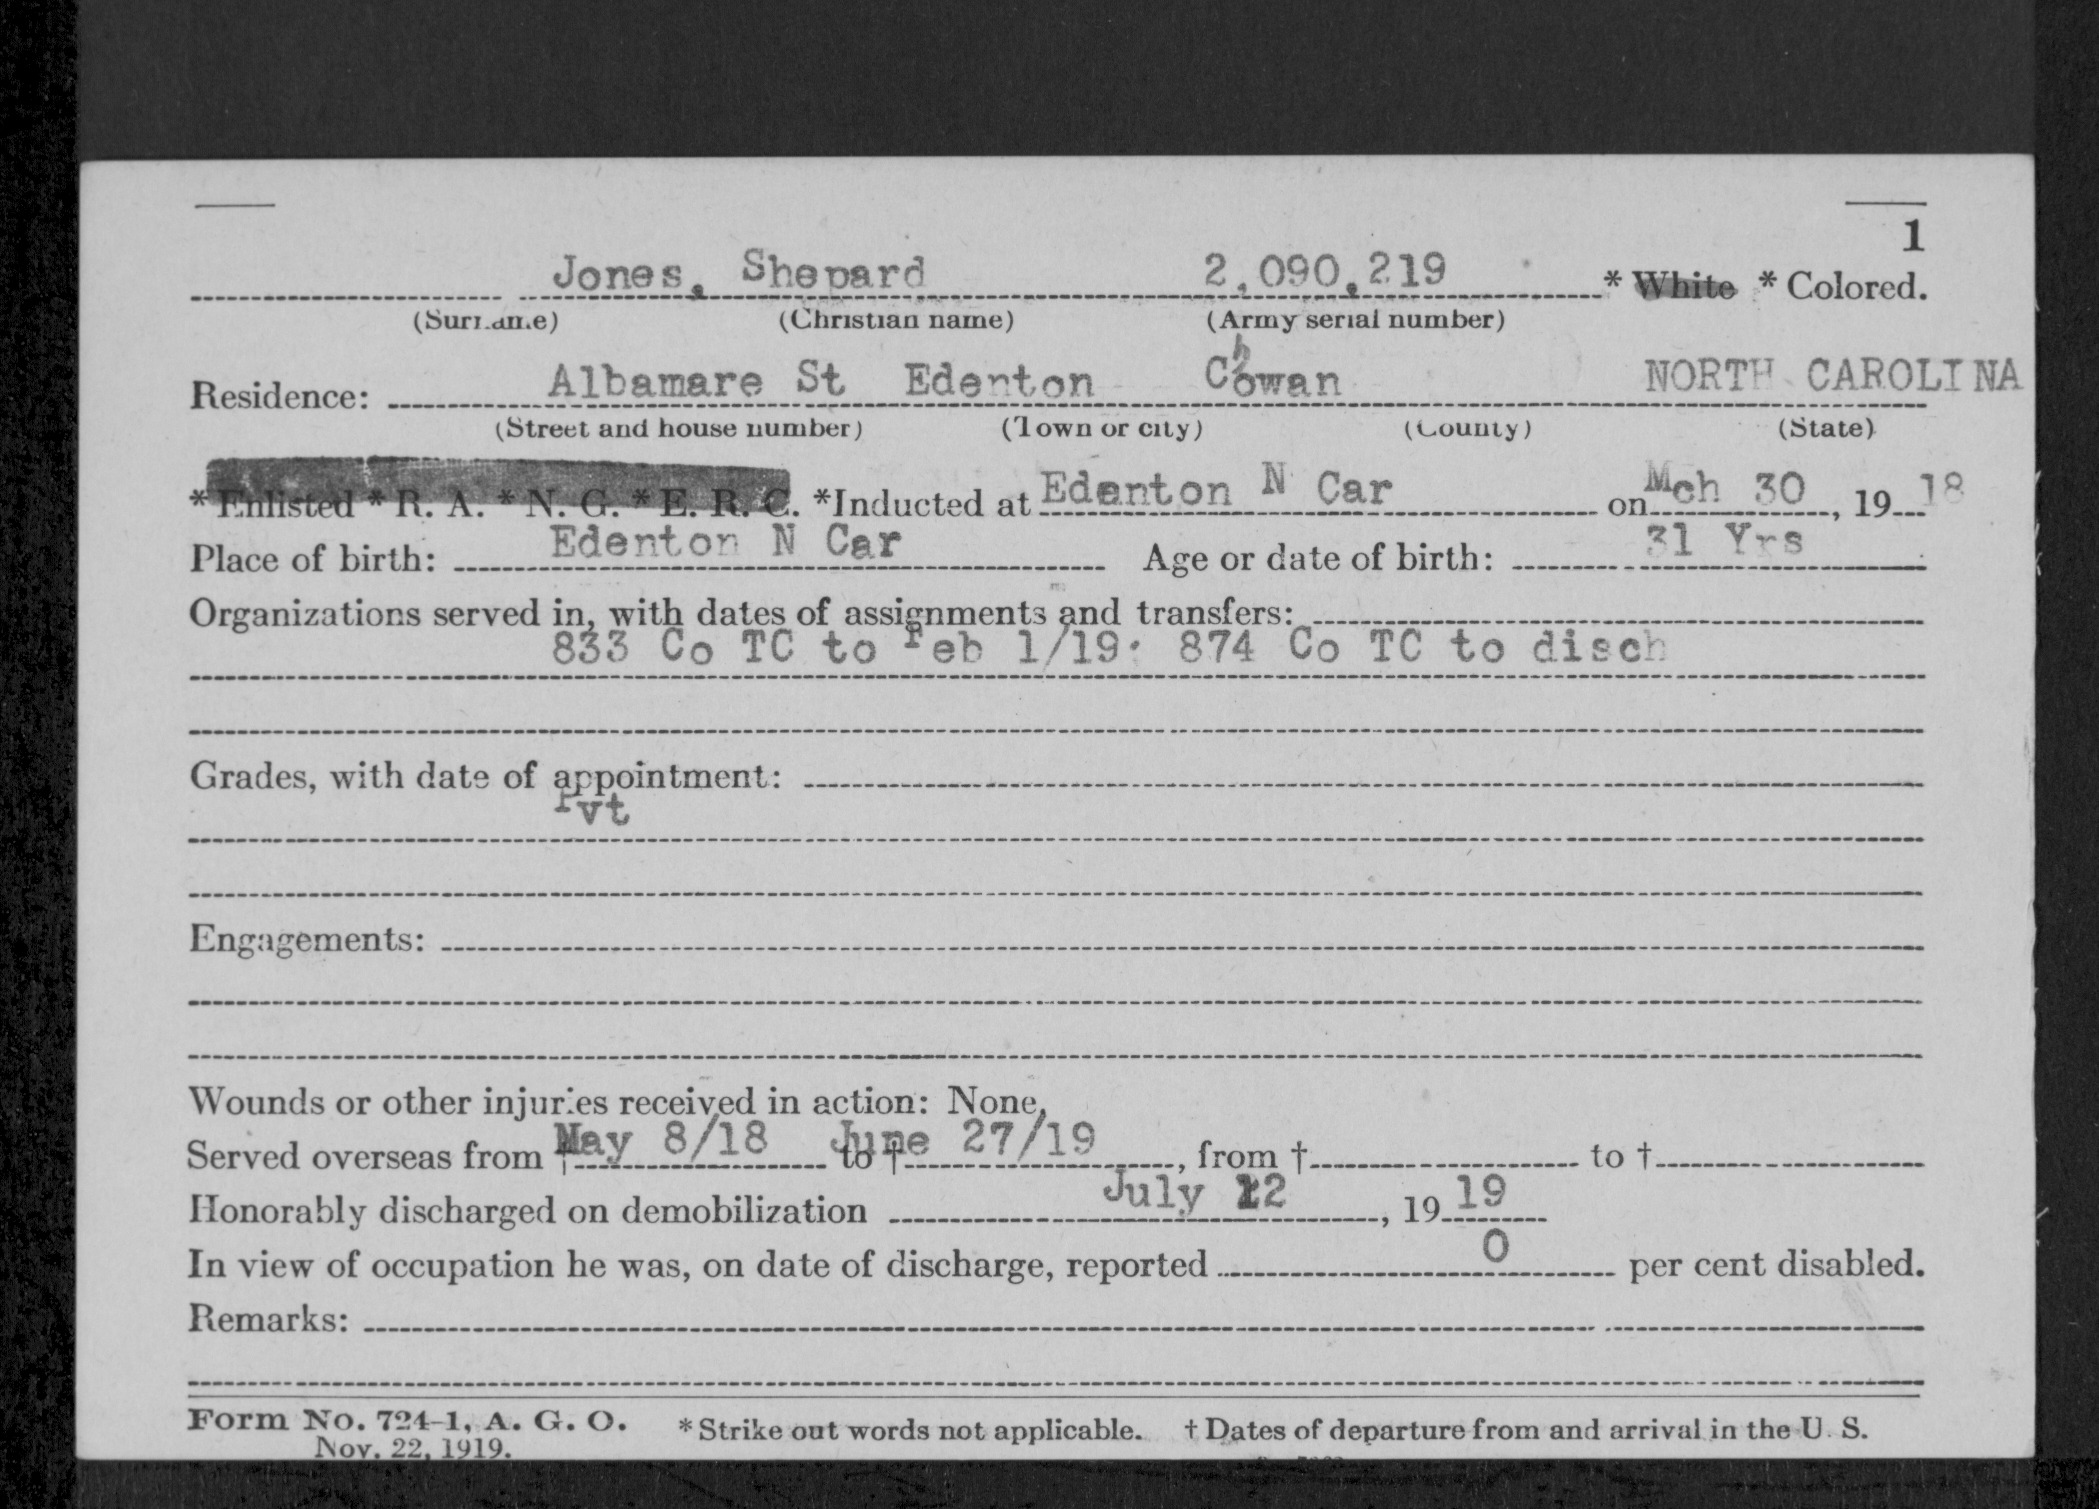 1
Jones, Shepard 2,090,219 * White * Colored.
(Surname) (Christian name) (Army serial number)
Residence: Albamare St Edenton Chowan NORTH CAROLINA
(Street and house number) (Town or city) (County) (State)
* Enlisted * R. A. * N. G. * E. R. C. *Inducted at Edenton N Car on Mch 30, 1918
Place of birth: Edenton N Car Age or date of birth: 31 Yrs
Organizations served in, with dates of assignments and transfers:
833 Co TC to Feb 1/19; 874 Co TC to disch
Grades, with date of appointment:
Pvt
Engagements:
Wounds or other injuries received in action: None.
Served overseas from † May 8/18 to † June 27/19, from † to †
Honorably discharged on demobilization July 12, 19 19
In view of occupation he was, on date of discharge, reported 0 per cent disabled.
Remarks:
Form No. 724-1, A. G. O. * Strike out words not applicable. † Dates of departure from and arrival in the U. S.
Nov. 22, 1919.